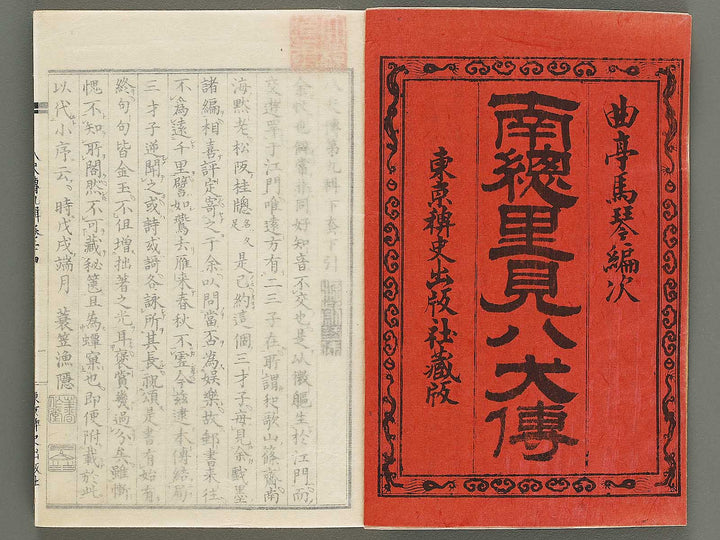 曲亭馬琴編次
南總里見八犬傳
東京稗史出版社藏版
八犬傳第九輯下套下引
交遊罕于江門唯遠方有二三子在所謂和歌山篠齋南
海默老松阪桂牕是已約這個三才子每見余戲墨
諸編相喜評定寄之于余以問當否為娛樂故郵書果往
不為遠千里譬如鶩去雁来春秋不虛今兹逮本傳結局
三才子逆聞之或詩或謌各詠所其長就頌是書有始有
終句句皆金玉不但增拙著之光耳褒賞幾過分矣雖慚
愧不知所閣然不可藏秘篋且為蟫窠也即便附載於此
以代小序云時戊戌端月 蓑笠漁隱